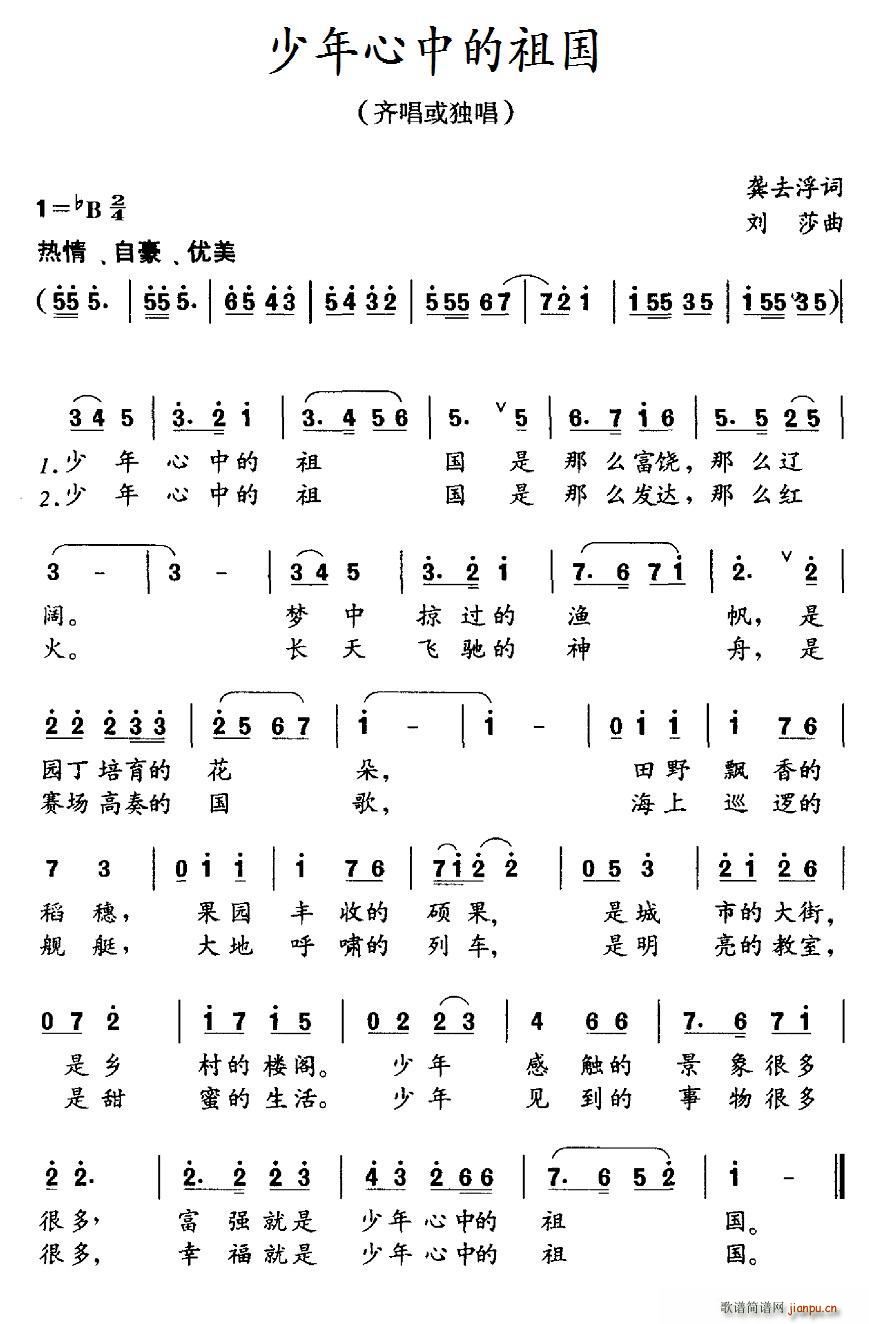 少年心中的祖国
（齐唱或独唱）
龚去浮词
1=♭B 2/4
刘 莎曲
热情、自豪、优美
(55 5. | 55 5. | 65 43 | 54 32 | 555 67 | 721 | 155 35 | 155 35)|
34 5 | 3. 2 1 | 3. 4 56 | 5. ∨ 5 | 6. 7 16 | 5. 5 25 |
1.少 年 心 中的 祖 国 是 那 么富饶，那 么辽
2.少 年 心 中的 祖 国 是 那 么发达，那 么红
3 - | 3 - | 34 5 | 3. 2 1 | 7. 6 71 | 2. ∨ 2 |
阔。 梦 中 掠 过的 渔 帆，是
火。 长 天 飞 驰的 神 舟，是
22 233 | 25 67 | 1 - | 1 - | 01 1 | 1 76 |
园丁培育的 花 朵， 田野 飘香的
赛场高奏的 国 歌， 海上 巡逻的
7 3 | 01 1 | 1 76 | 712 2 | 05 3 | 21 26 |
稻 穗， 果园 丰 收的 硕果， 是城 市的大街，
舰 艇， 大地 呼 啸的 列车， 是明 亮的教室，
07 2 | 17 15 | 02 23 | 4 66 | 7. 6 71 |
是乡 村的楼阁。 少年 感 触的 景 象很多
是甜 蜜的生活。 少年 见 到的 事 物很多
2 2. | 2. 2 23 | 43 266 | 7. 6 52 | 1 - ‖
很多， 富 强就是 少年心中的 祖 国。
很多， 幸 福就是 少年心中的 祖 国。
歌谱简谱网 jianpu.cn